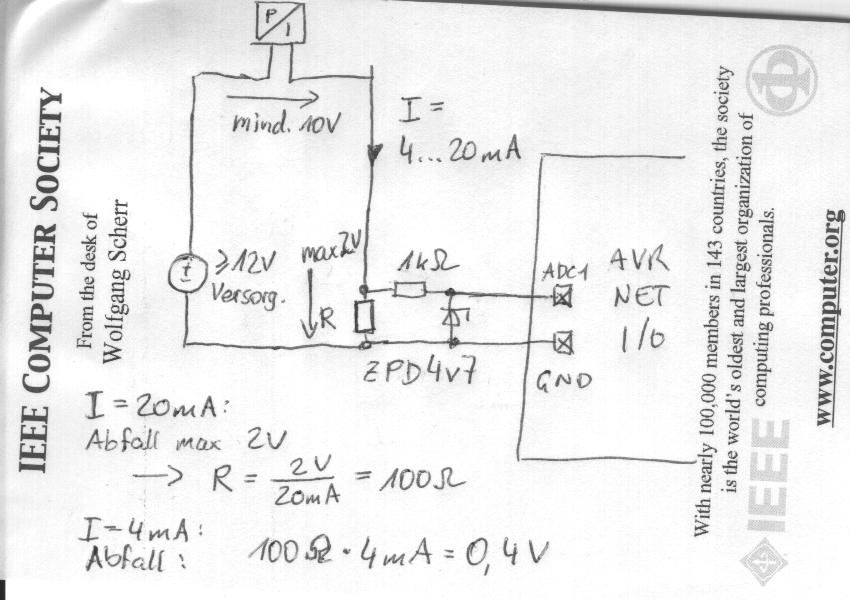 IEEE COMPUTER SOCIETY
From the desk of
Wolfgang Scherr
P
I
mind. 10V
I =
4...20mA
≥12V
Versorg.
max 2V
R
1kΩ
ZPD4V7
ADC1
GND
AVR
NET
I/O
I = 20mA:
Abfall max 2V
→ R = 2V / 20mA = 100Ω
I = 4mA:
Abfall: 100Ω · 4mA = 0,4V
With nearly 100,000 members in 143 countries, the society
is the world's oldest and largest organization of
computing professionals.
IEEE
www.computer.org